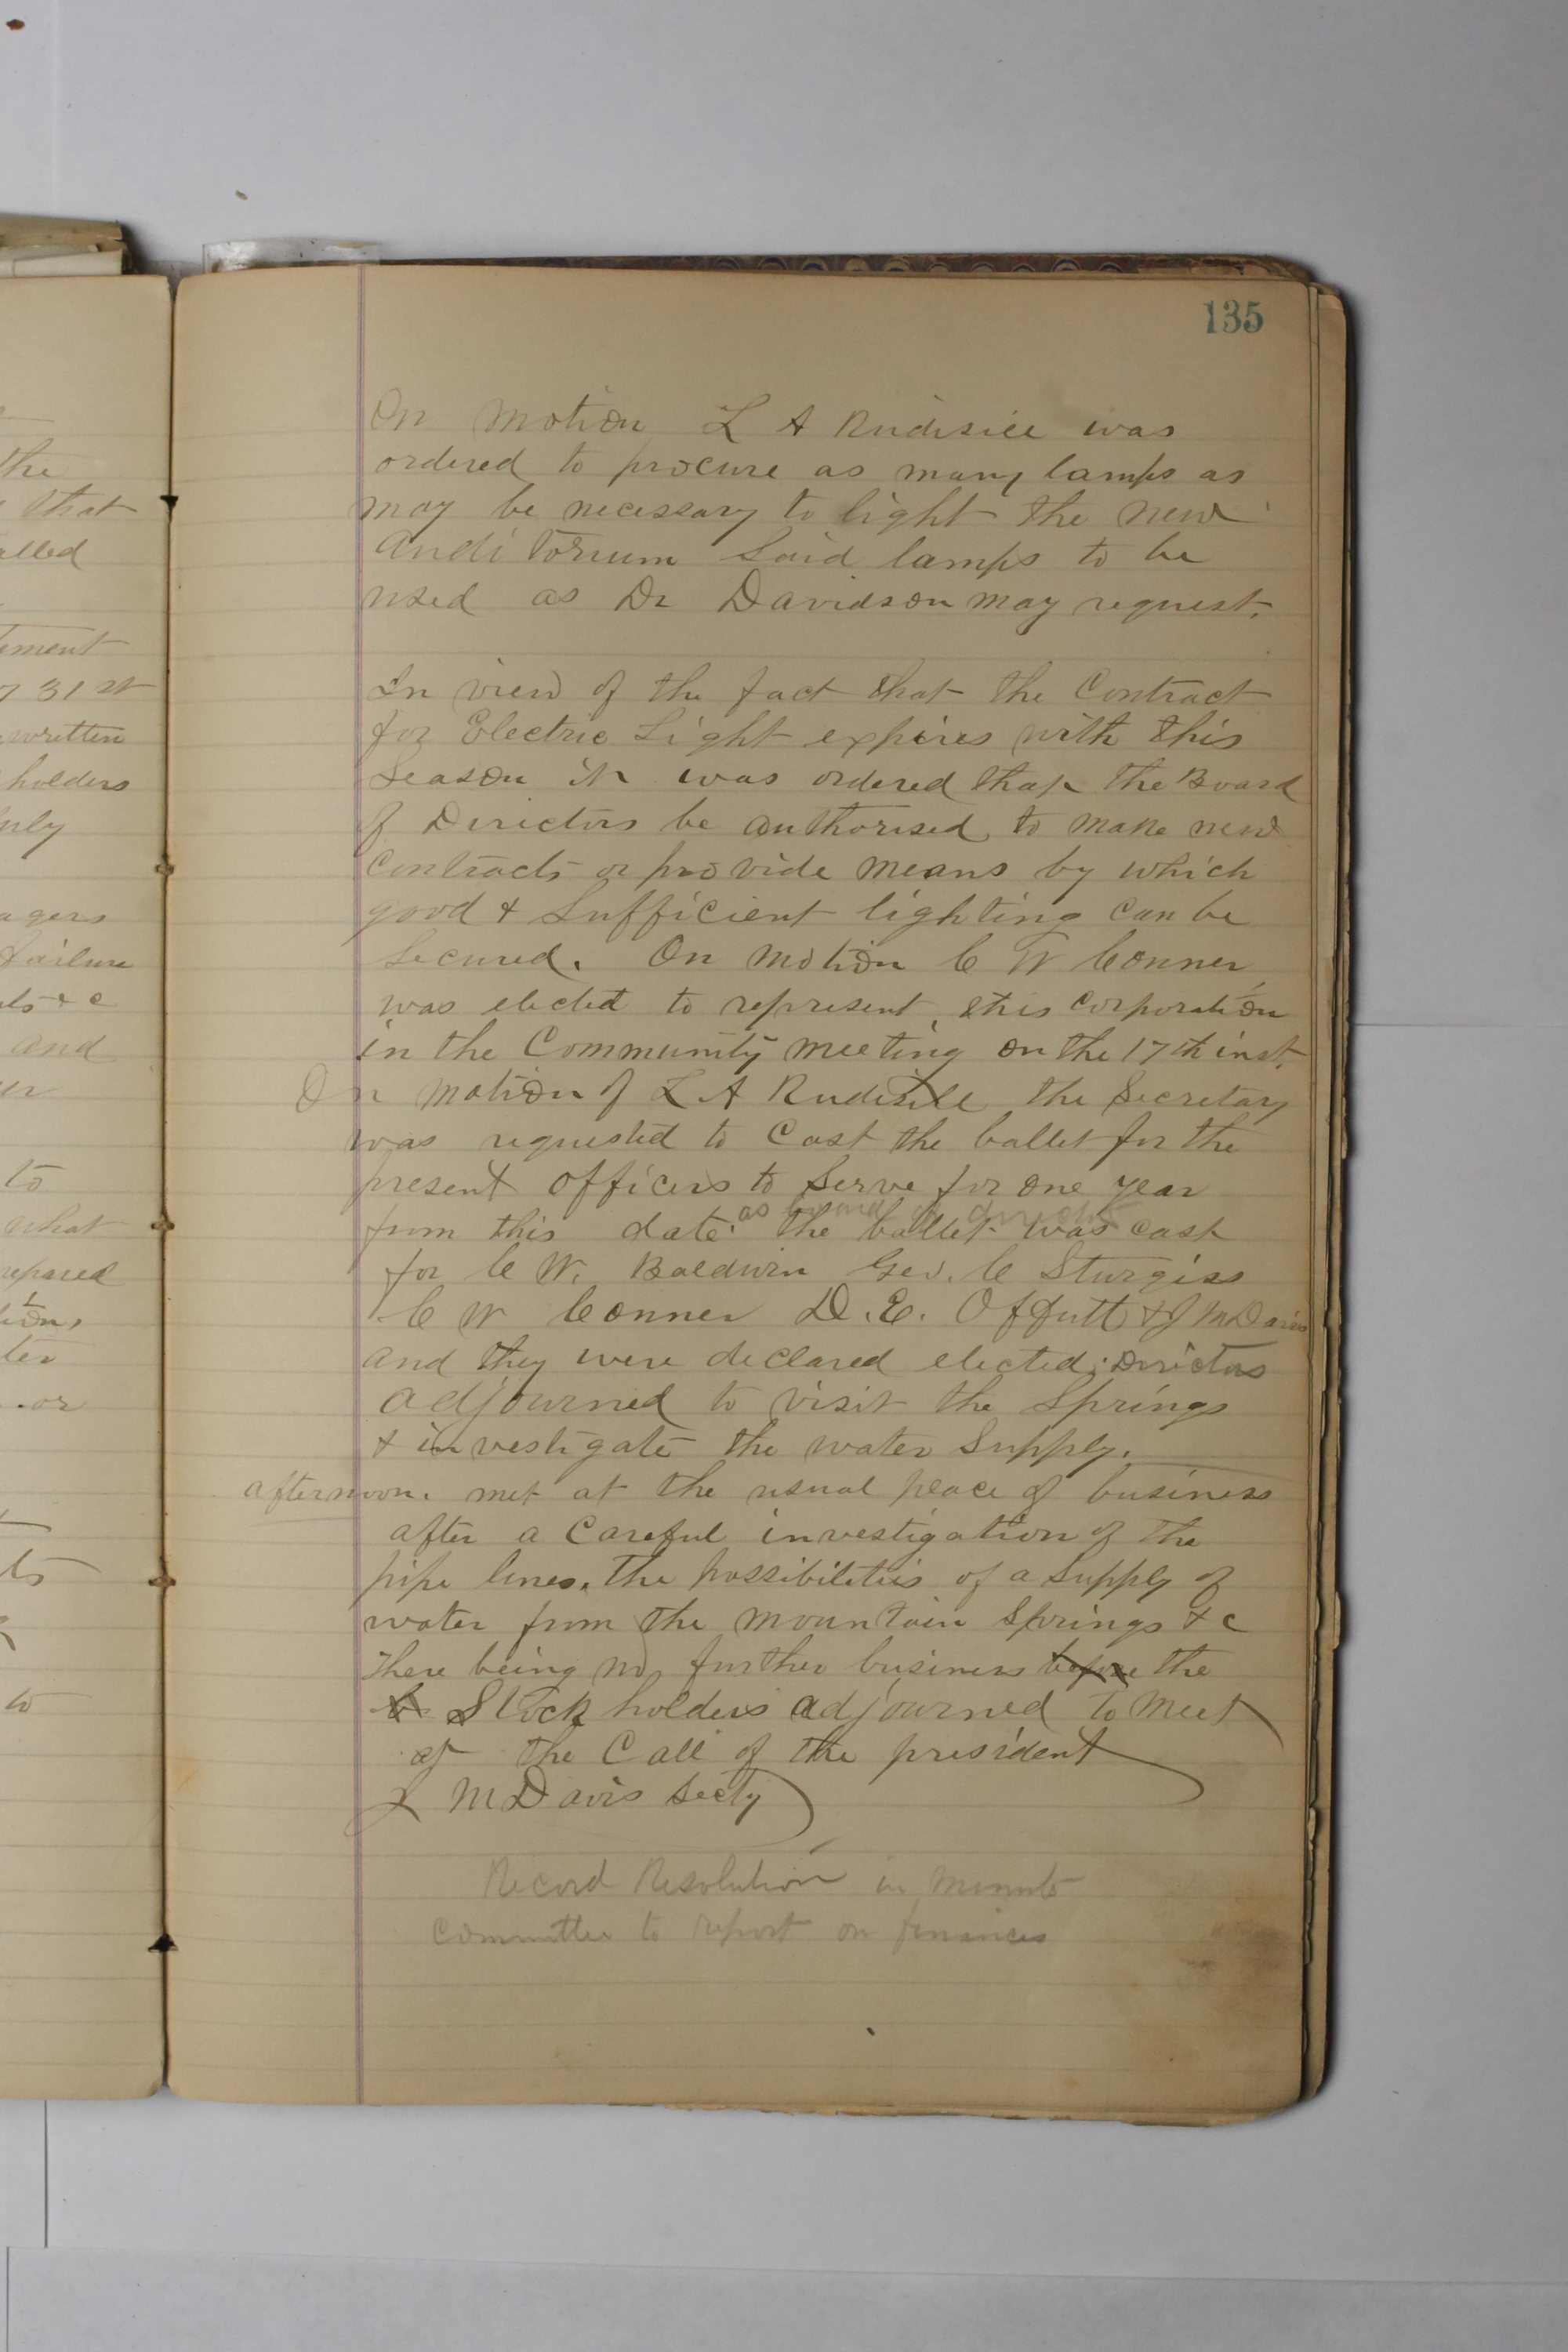 135
On motion L A Rudisill was
ordered to procure as many lamps as
may be necessary to light the new
auditorium Said lamps to be
used as Dr Davidson may request.
In view of the fact that the Contract
for Electric Light expires with this
Season it was ordered that the Board
of Directors be authorised to make new
Contracts or provide means by which
good & Sufficient lighting can be
Secured. On motion C W Conner
was elected to represent this Corporation
in the Community meeting on the 17th inst.
On motion of L A Rudisill the Secretary
was requested to Cast the ballet for the
present officers to Serve for one year
as board of directors
from this date. the ballet was cast
for C W. Baldwin Geo. C Sturgiss
C W Conner D. E. Offutt & J M Davis
and they were declared elected; Directors
adjourned to visit the Springs
& investigate the water Supply.
afternoon. met at the usual place of business
after a Careful investigation of the
pipe lines. the possibilities of a Supply of
water from the mountain Springs & c
There being no further business before the
Stock holders adjourned to meet
at the Call of the president
J M Davis Secty
Record Resolution in minuts
Committee to report on finances
the
that
alled
ement
31 st
written
holders
nly
agers
failure
ls & c
and
er
to
what
repared
tions
ter
or
ts
to